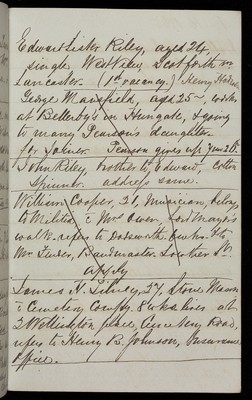 Edward Lister Riley, aged 24,
single, West View, Scotforth nr
Lancaster. (1st vacancy.) Henry
George Mansfield, aged 25, works
at Bellerby's in Hungate, & going
to marry Pearson's daughter
for Joiner. Pearson gives up Jan 26.
John Riley, brother to Edward, Cotton
Spinner address same.
William Cooper, 21, Musician, belongs
to Militia & Mrs Owen, Lord Mayor's
walk. refer to Dodsworth & to
Mr Bandmaster Lowther St.
apply
James H. Tilney, 27, Stone Mason
Cemetery Compy. 8 yrs. lives at
2 Wellington place, Cemetery Road,
refers to Henry B. Johnson, Insurance
Office.